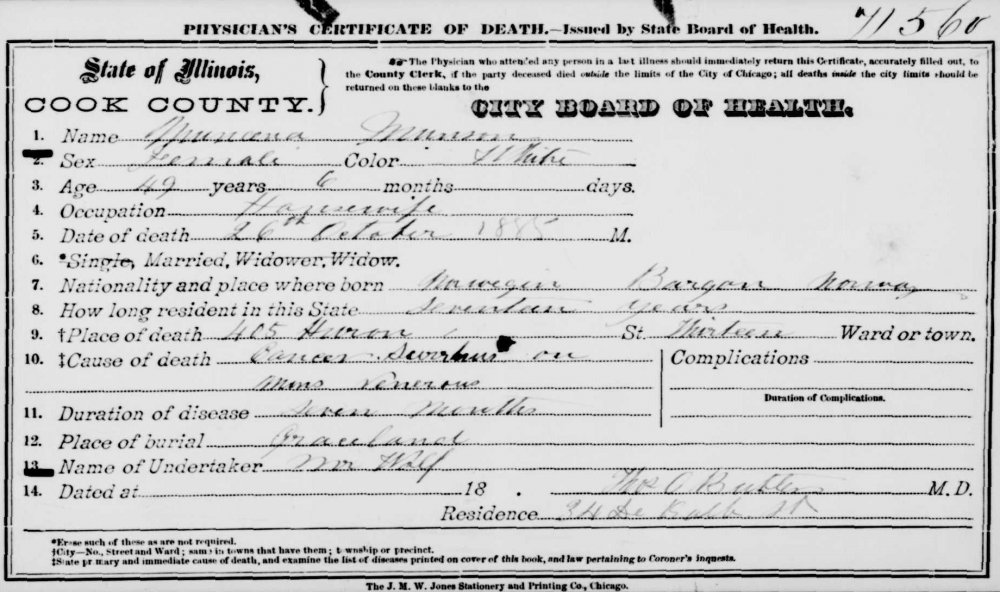 71560
PHYSICIAN'S CERTIFICATE OF DEATH.—Issued by State Board of Health.
State of Illinois,
COOK COUNTY.
☞ The Physician who attended any person in a last illness should immediately return this Certificate, accurately filled out, to
the County Clerk, if the party deceased died outside the limits of the City of Chicago; all deaths inside the city limits should be
returned on these blanks to the
CITY BOARD OF HEALTH.
1. Name Munson
2. Sex Female Color White
3. Age 49 years 6 months days.
4. Occupation Housewife
5. Date of death 26th October 1885 M.
6. *Single, Married, Widower, Widow.
7. Nationality and place where born Norwegin Bargon Norway
8. How long resident in this State Seventeen years
9. †Place of death 405 Huron St. Thirteen Ward or town.
10. ‡Cause of death Cancer on
Mons Venerous
Complications
Duration of Complications.
11. Duration of disease Seven Months
12. Place of burial Graceland
13. Name of Undertaker Mr Wolf
14. Dated at 18 . Thos O Butler M.D.
Residence 34 De Kalb St
*Erase such of these as are not required.
†City—No., Street and Ward; same in towns that have them; township or precinct.
‡State primary and immediate cause of death, and examine the list of diseases printed on cover of this book, and law pertaining to Coroner's inquests.
The J. M. W. Jones Stationery and Printing Co., Chicago.